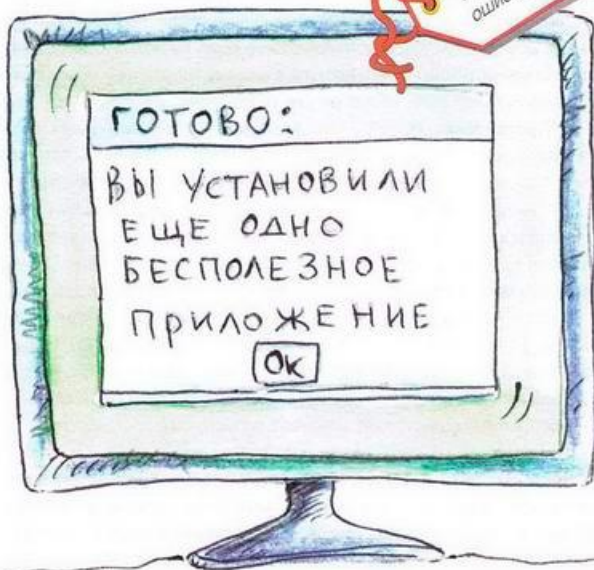 ГОТОВО:
ВЫ УСТАНОВИЛИ
ЕЩЕ ОДНО
БЕСПОЛЕЗНОЕ
ПРИЛОЖЕНИЕ
Ok